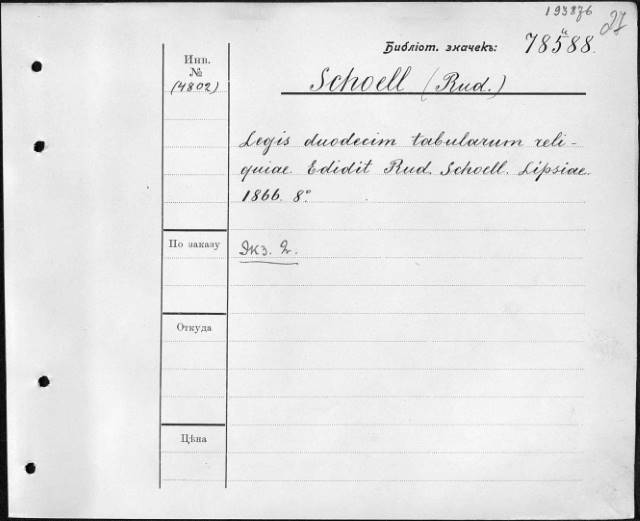 193876
27
Библіот. значекъ: 78588.
Инв.
№
(4802)
Schoell (Rud.)
Legis duodecim tabularum reli-
quiae. Edidit Rud. Schoell. Lipsiae.
1866. 8°
По заказу
Экз. 2.
Откуда
Цѣна